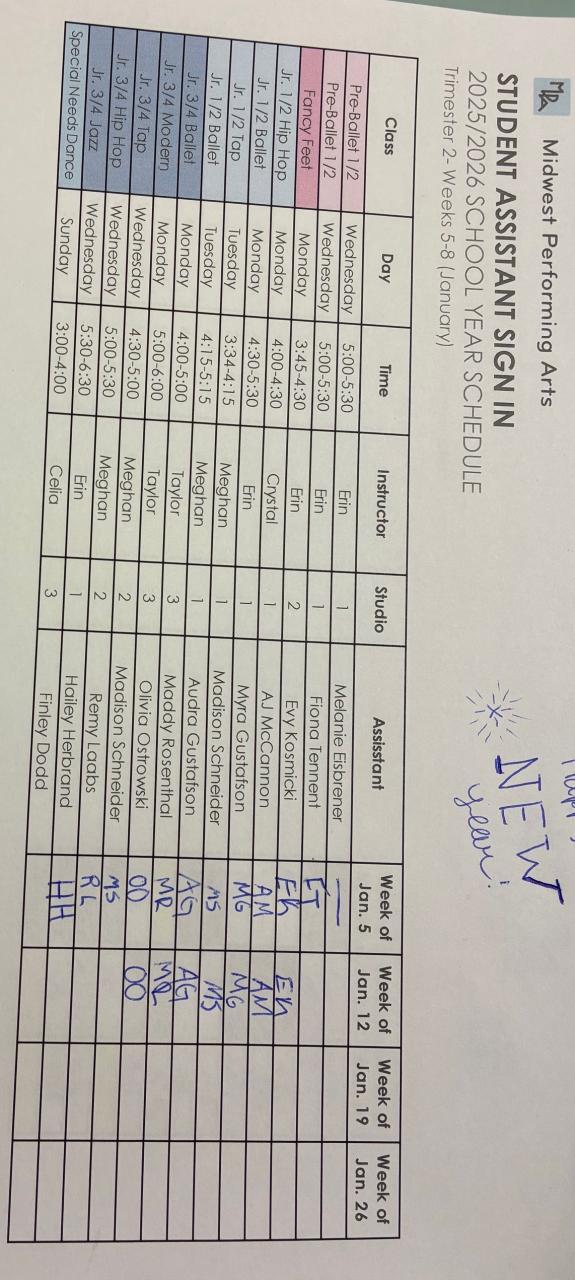 Midwest Performing Arts
STUDENT ASSISTANT SIGN IN
2025/2026 SCHOOL YEAR SCHEDULE
Trimester 2- Weeks 5-8 (January)
NEW
year!
Class Day Time Instructor Studio Assisstant Week of Jan. 5 Week of Jan. 12 Week of Jan. 19 Week of Jan. 26
Pre-Ballet 1/2 Wednesday 5:00-5:30 Erin 1 Melanie Eisbrener —
Pre-Ballet 1/2 Wednesday 5:00-5:30 Erin 1 Fiona Tennent FT
Fancy Feet Monday 3:45-4:30 Erin 2 Evy Kosmicki EK EK
Jr. 1/2 Hip Hop Monday 4:00-4:30 Crystal 1 AJ McCannon AM AM
Jr. 1/2 Ballet Monday 4:30-5:30 Erin 1 Myra Gustafson MG MG
Jr. 1/2 Tap Tuesday 3:34-4:15 Meghan 1 Madison Schneider MS MS
Jr. 1/2 Ballet Tuesday 4:15-5:15 Meghan 1 Audra Gustafson AG AG
Jr. 3/4 Ballet Monday 4:00-5:00 Taylor 3 Maddy Rosenthal MR MR
Jr. 3/4 Modern Monday 5:00-6:00 Taylor 3 Olivia Ostrowski OO OO
Jr. 3/4 Tap Wednesday 4:30-5:00 Meghan 2 Madison Schneider MS
Jr. 3/4 Hip Hop Wednesday 5:00-5:30 Meghan 2 Remy Laabs RL
Jr. 3/4 Jazz Wednesday 5:30-6:30 Erin 1 Hailey Herbrand HH
Special Needs Dance Sunday 3:00-4:00 Celia 3 Finley Dodd